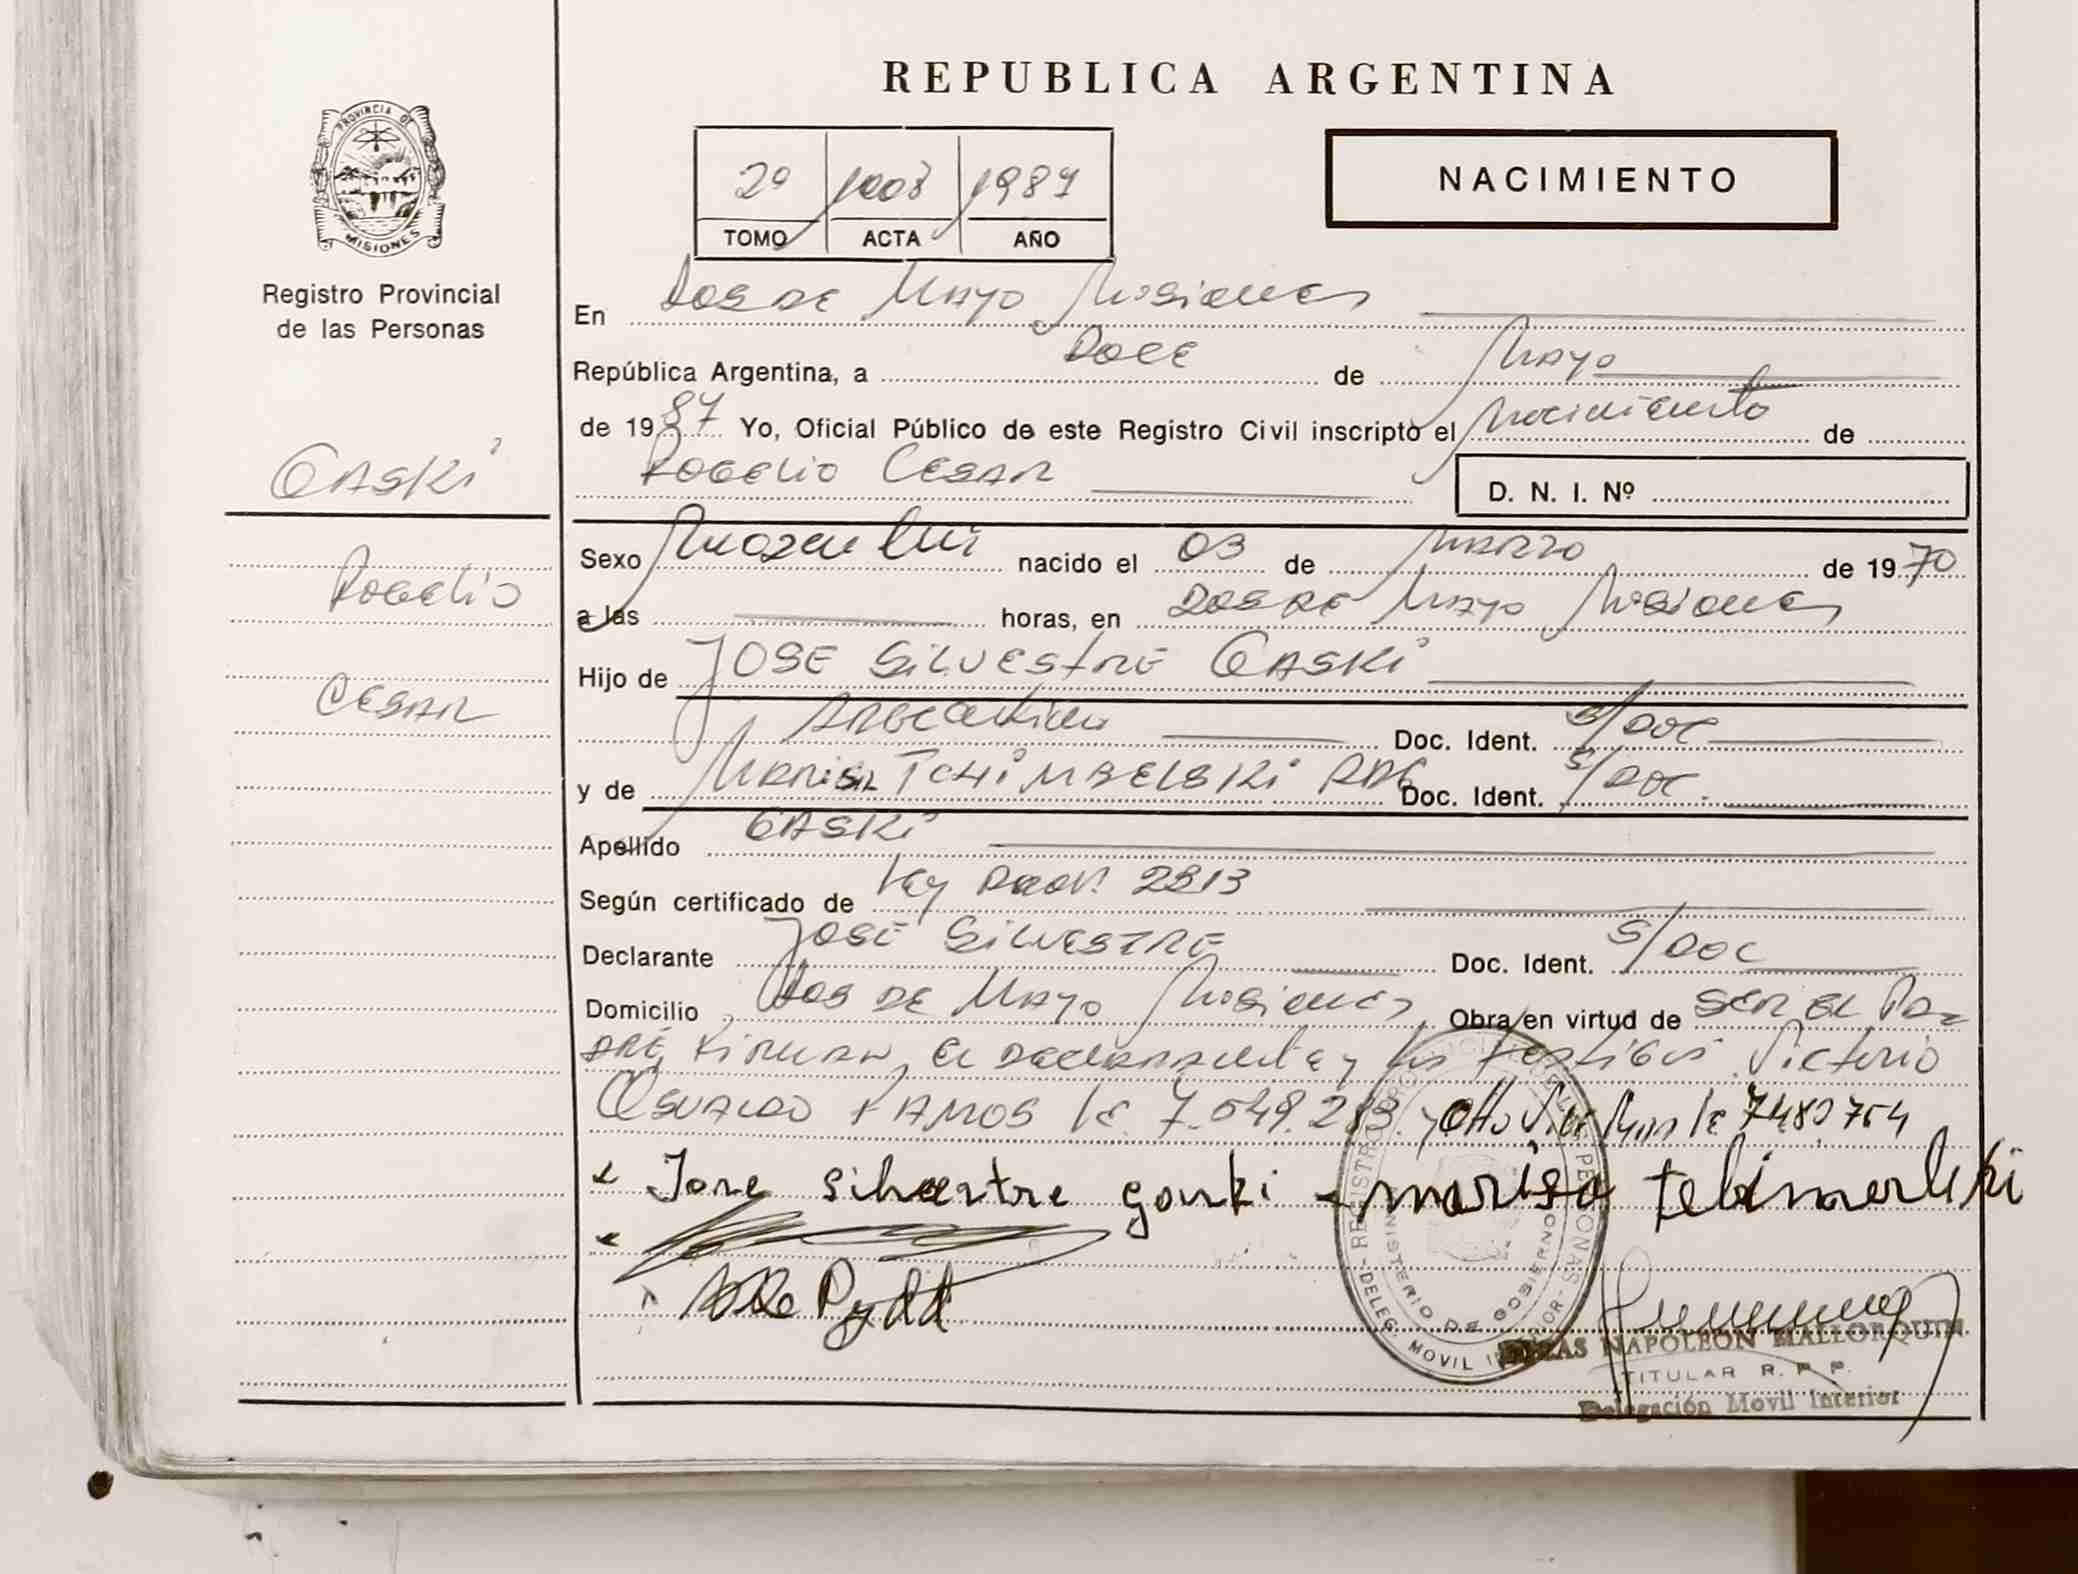 REPUBLICA ARGENTINA
PROVINCIA DE MISIONES
Registro Provincial
de las Personas
2º 1008 1987
TOMO ACTA AÑO
NACIMIENTO
En Dos de Mayo Misiones
República Argentina, a Doce de Mayo
de 1987 Yo, Oficial Público de este Registro Civil inscripto el Nacimiento de
Rogelio Cesar
D. N. I. Nº
Gaski
Rogelio
Cesar
Sexo Masculino nacido el 03 de Marzo de 1970
a las horas, en Dos de Mayo Misiones
Hijo de JOSE SILVESTRE GASKI
Argentino Doc. Ident. S/Doc
y de Marisa Doc. Ident. S/Doc.
Apellido GASKI
Según certificado de Ley Prov. 2813
Declarante JOSE SILVESTRE Doc. Ident. S/Doc
Domicilio Dos de Mayo Misiones Obra en virtud de SER EL Pa-
dre, Firman, el Declarante y los testigos Victorio
Osvaldo RAMOS LE. 7.549.283 y Otto LE
Jose silvestre gaski marisa
REGISTRO PROVINCIAL DE LAS PERSONAS
MINISTERIO DE GOBIERNO
DELEG. MOVIL INTERIOR
NAPOLEON MALLORQUIN
TITULAR R. P. P.
Delegación Movil Interior